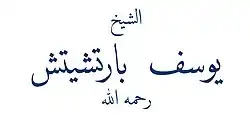 الشيخ
يوسف بارتشيتش
رحمه الله